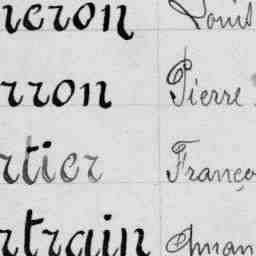 neron Louis
rron Pierre
rtier Franço
rtrain Aman